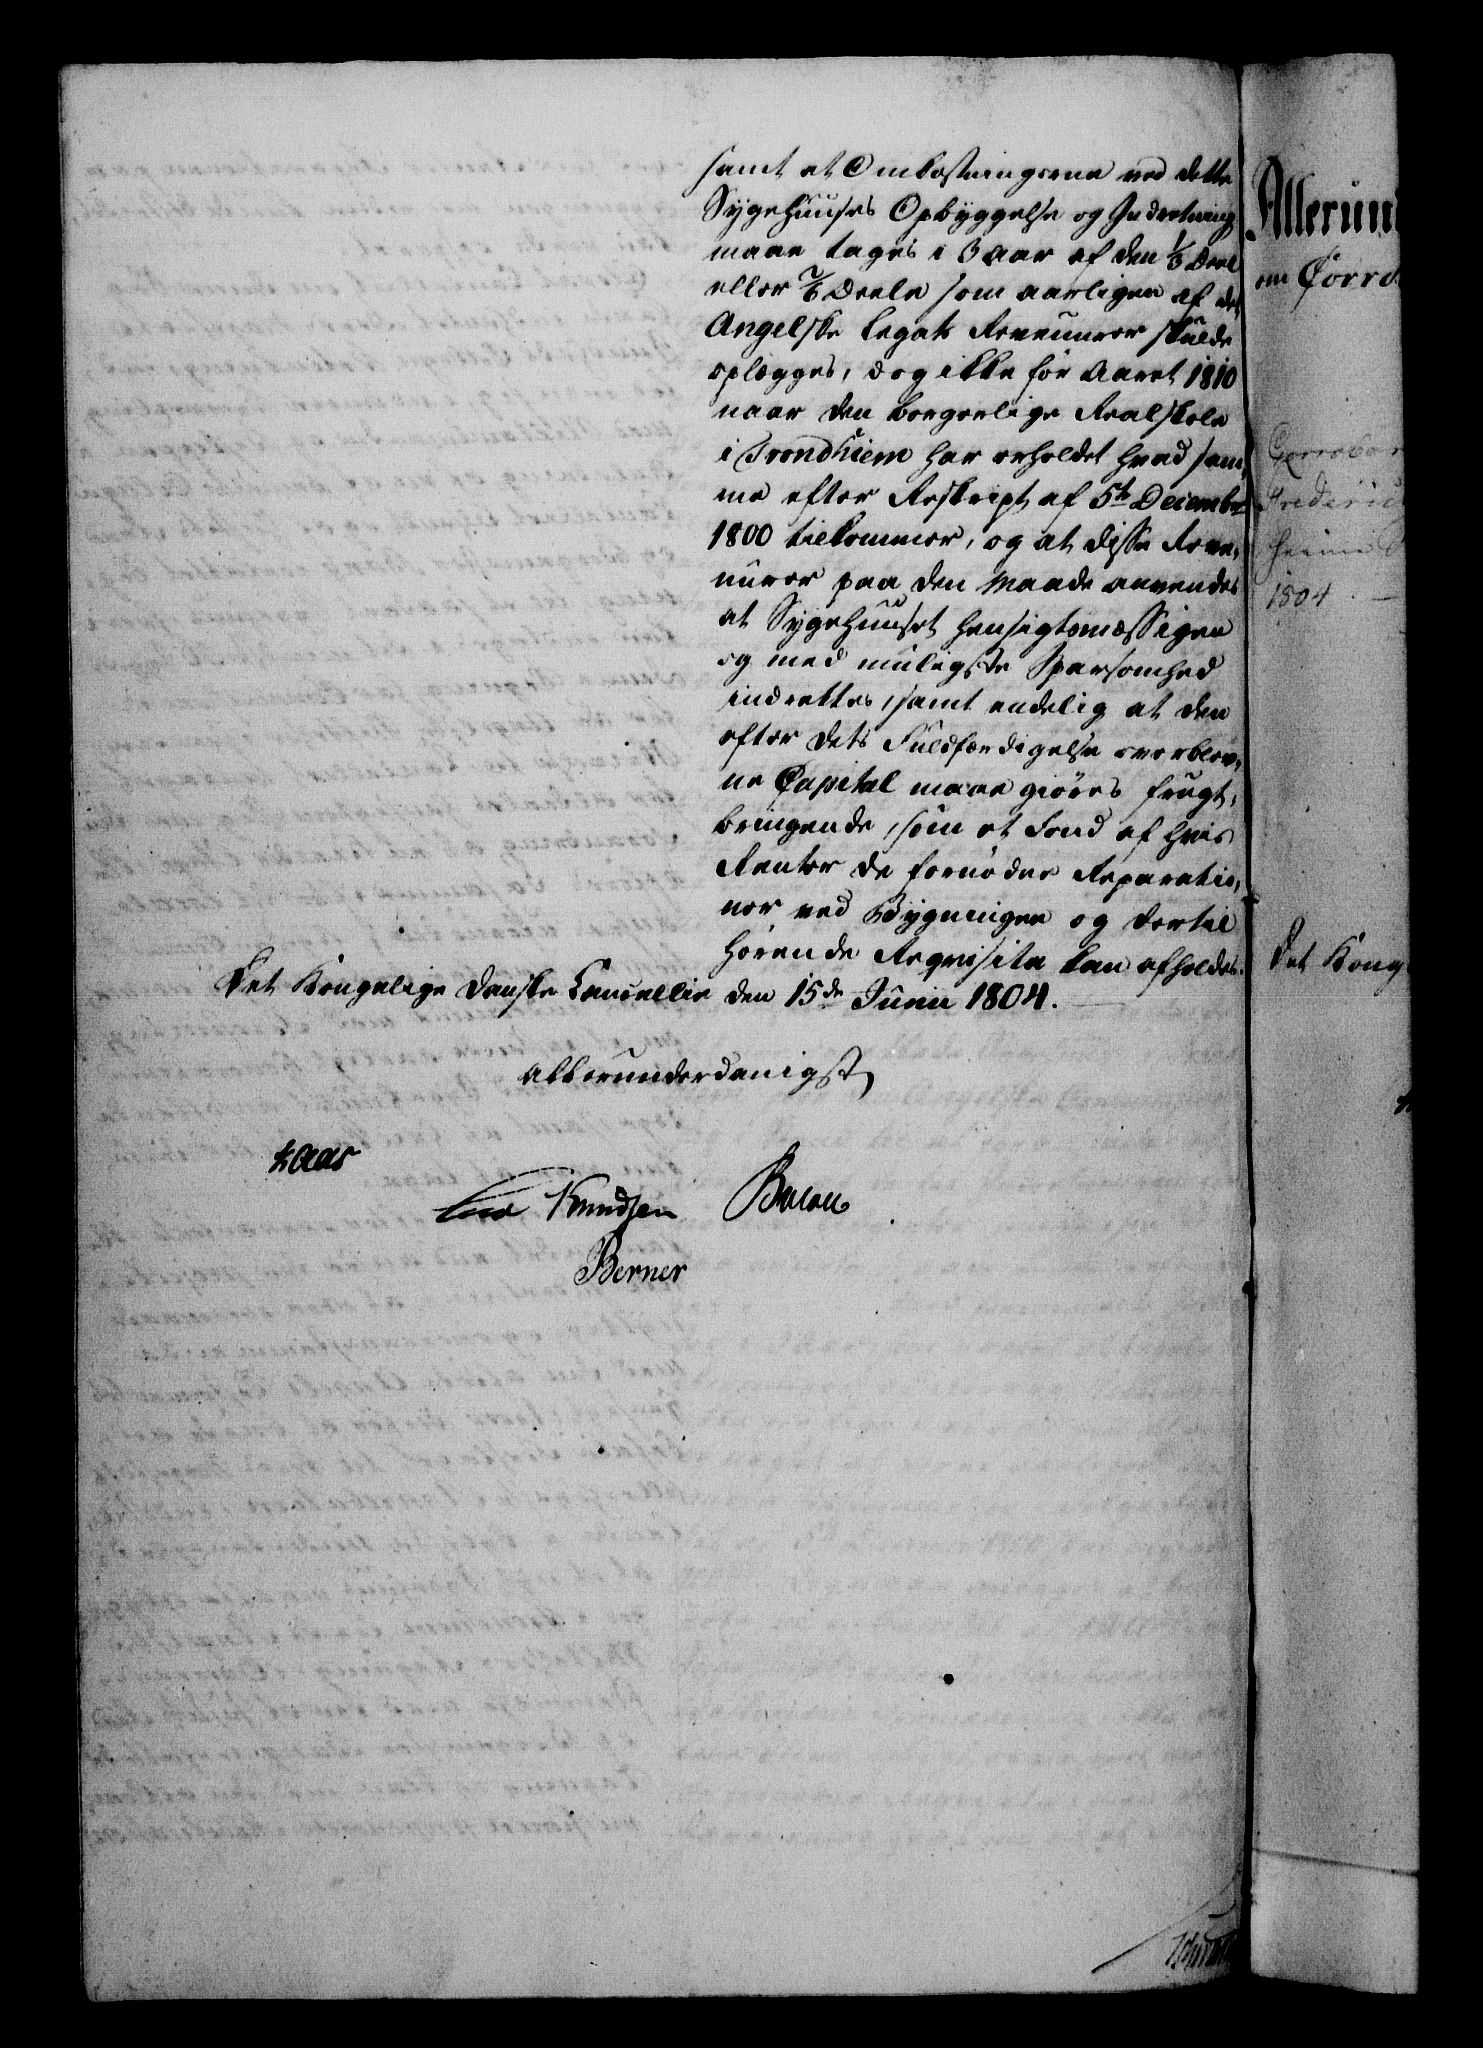 samt at Omkostningerne ved dette
Sygehuuses Opbyggelse og Indretning
maae tages i 3 Aar af den 1/3 Deel
eller 2/6 Deele som aarligen af det
Angelske Legats Revenueer skulde
oplægges, dog ikke før Aaret 1810
naar den borgerlige Realskole
i Trondhiem har erholdet hvad sam,
me efter Reskript af 5te December
1800 tilkommer, og at disse Reve,
nueer paa den Maade anvendes
at Sygehuuset hensigtsmæssigen
og med muligste Sparsomhed
indrettes, samt endelig at den
efter dets Fuldfærdigelse overblev,
ne Capital maae giøres frugt,
bringende, som et Fond af hvis
Renter de fornødne Reparatio,
ner ved Bygningen og dertil
hørende Reqvisita kan afholdes.
Det Kongelige Danske Cancellie den 15de Junii 1804.
allerunderdanigst
Kaas
Knudsen Bülow
Berner
Allerund
om
Frederic
1804
Det Kong